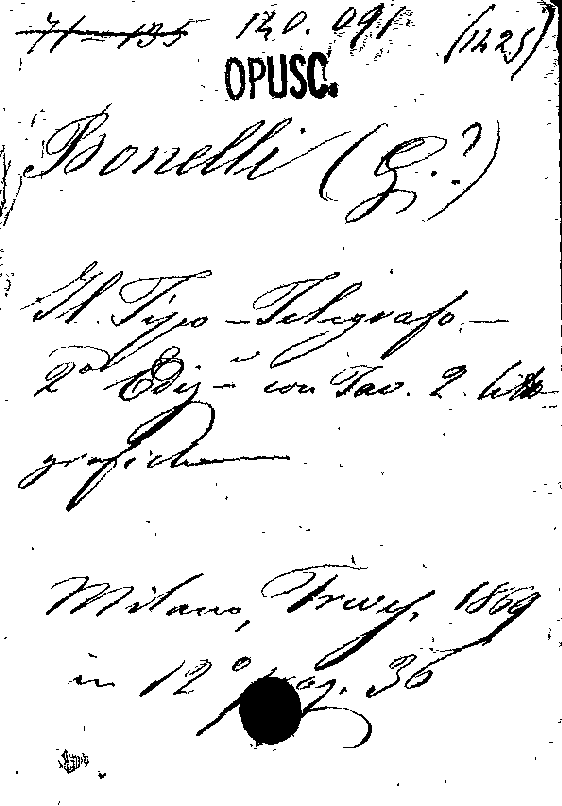 71-135 120. 091 (1425)
OPUSC.
Bonelli (G.?)
Il Tipo-Telegrafo.—
2ª Edizne con Tav. 2 lito
grafiche
Milano, Treves, 1869
in 12º pag. 36